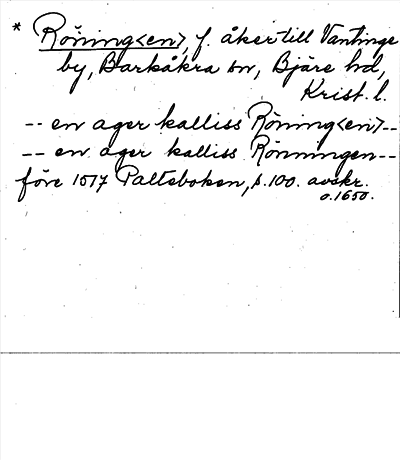 * Röning<en>, f. åker till Vantinge
by, Barkåkra sn, Bjäre hd,
Krist. l.
-- en ager kalliss Röning<en>--
-- en ager kalliss Rönningen--
före 1517 Paltsboken, s. 100. avskr.
o. 1650.